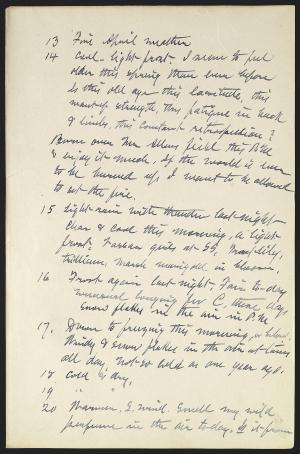 13 Fine April weather
14 Cool - light frost - I seem to feel
older this spring than ever before
Is this old age - this lassitude, this
want of strength, this fatigue in back
& limbs, this constant retrospection?
Burn over Mr Allens field this P.M.
& enjoy it much. If the world is ever
to be burned up I want to be allowed
to set the fire.
15 Light rain with thunder last night -
Clear & cool this morning, a light
frost. at 55,
trillium, marsh marigold in bloom.
16 Frost again last night - Fair to-day
unusual longing for C. these days,
Snow flakes in the air in P.M.
17. Down to freezing this morning, or below.
Windy & snow flakes in the air at times
all day, not so cold as one year ago.
18 cold & dry,
19 " "
20 Warmer, S. wind. Smell my wild
perfume in the air to-day. Is it from